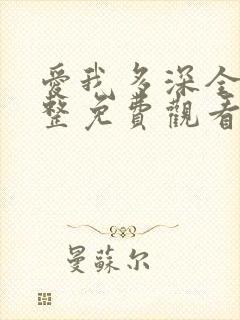 愛我多深全
整免費觀看
曼蘇尔